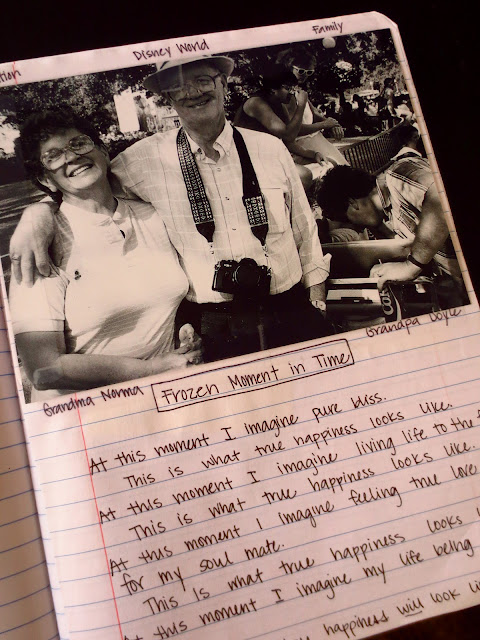 Disney World
Family
Grandma Norma
Grandpa Doyle
Frozen Moment in Time
At this moment I imagine pure bliss.
This is what true happiness looks like.
At this moment I imagine living life to the
This is what true happiness looks like.
At this moment I imagine feeling true love
for my soul mate.
This is what true happiness looks
At this moment I imagine my life being
happiness will look